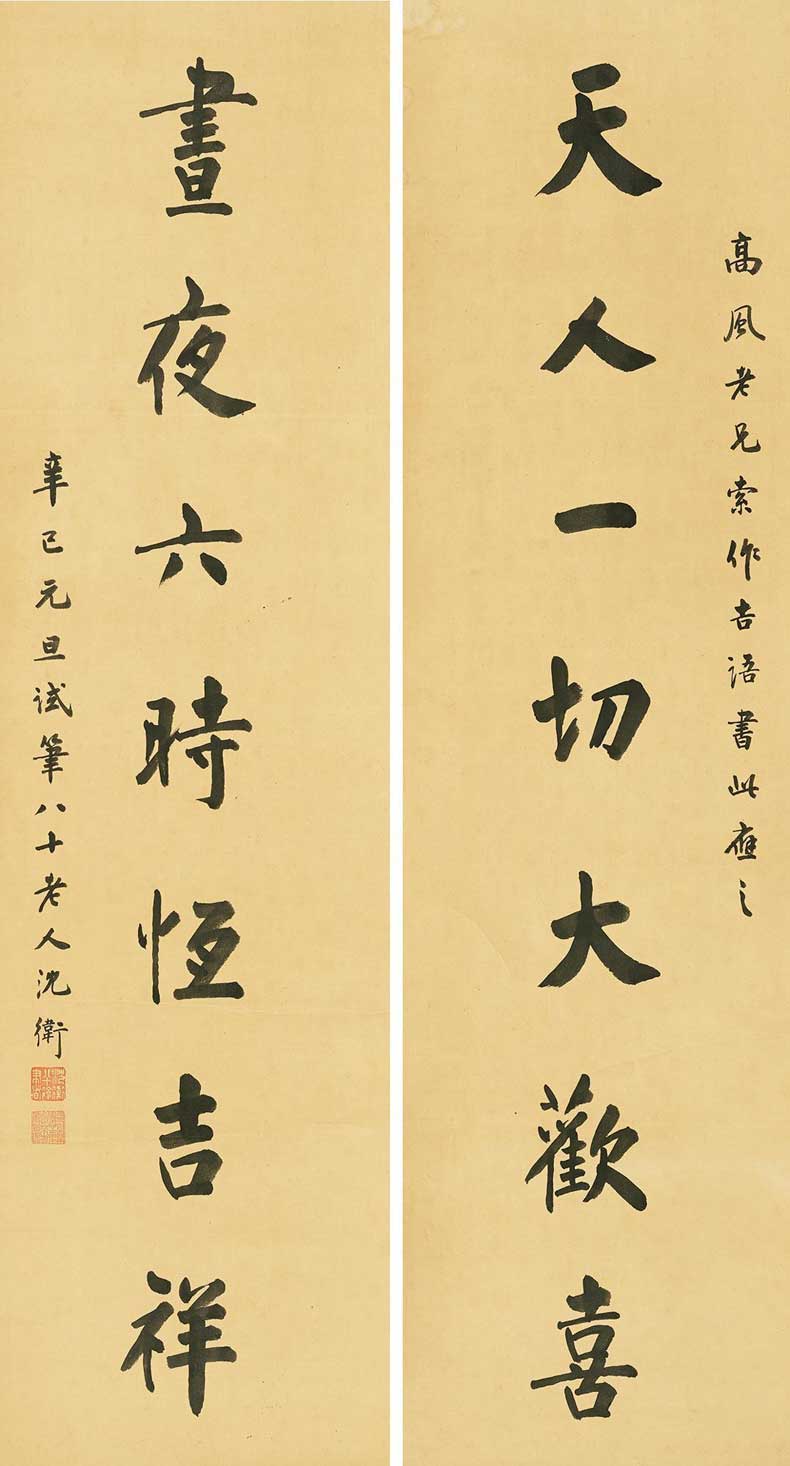 高風老兄索作吉語書此應之
天人一切大歡喜
晝夜六時恆吉祥
辛巳元旦試筆八十老人沈衛